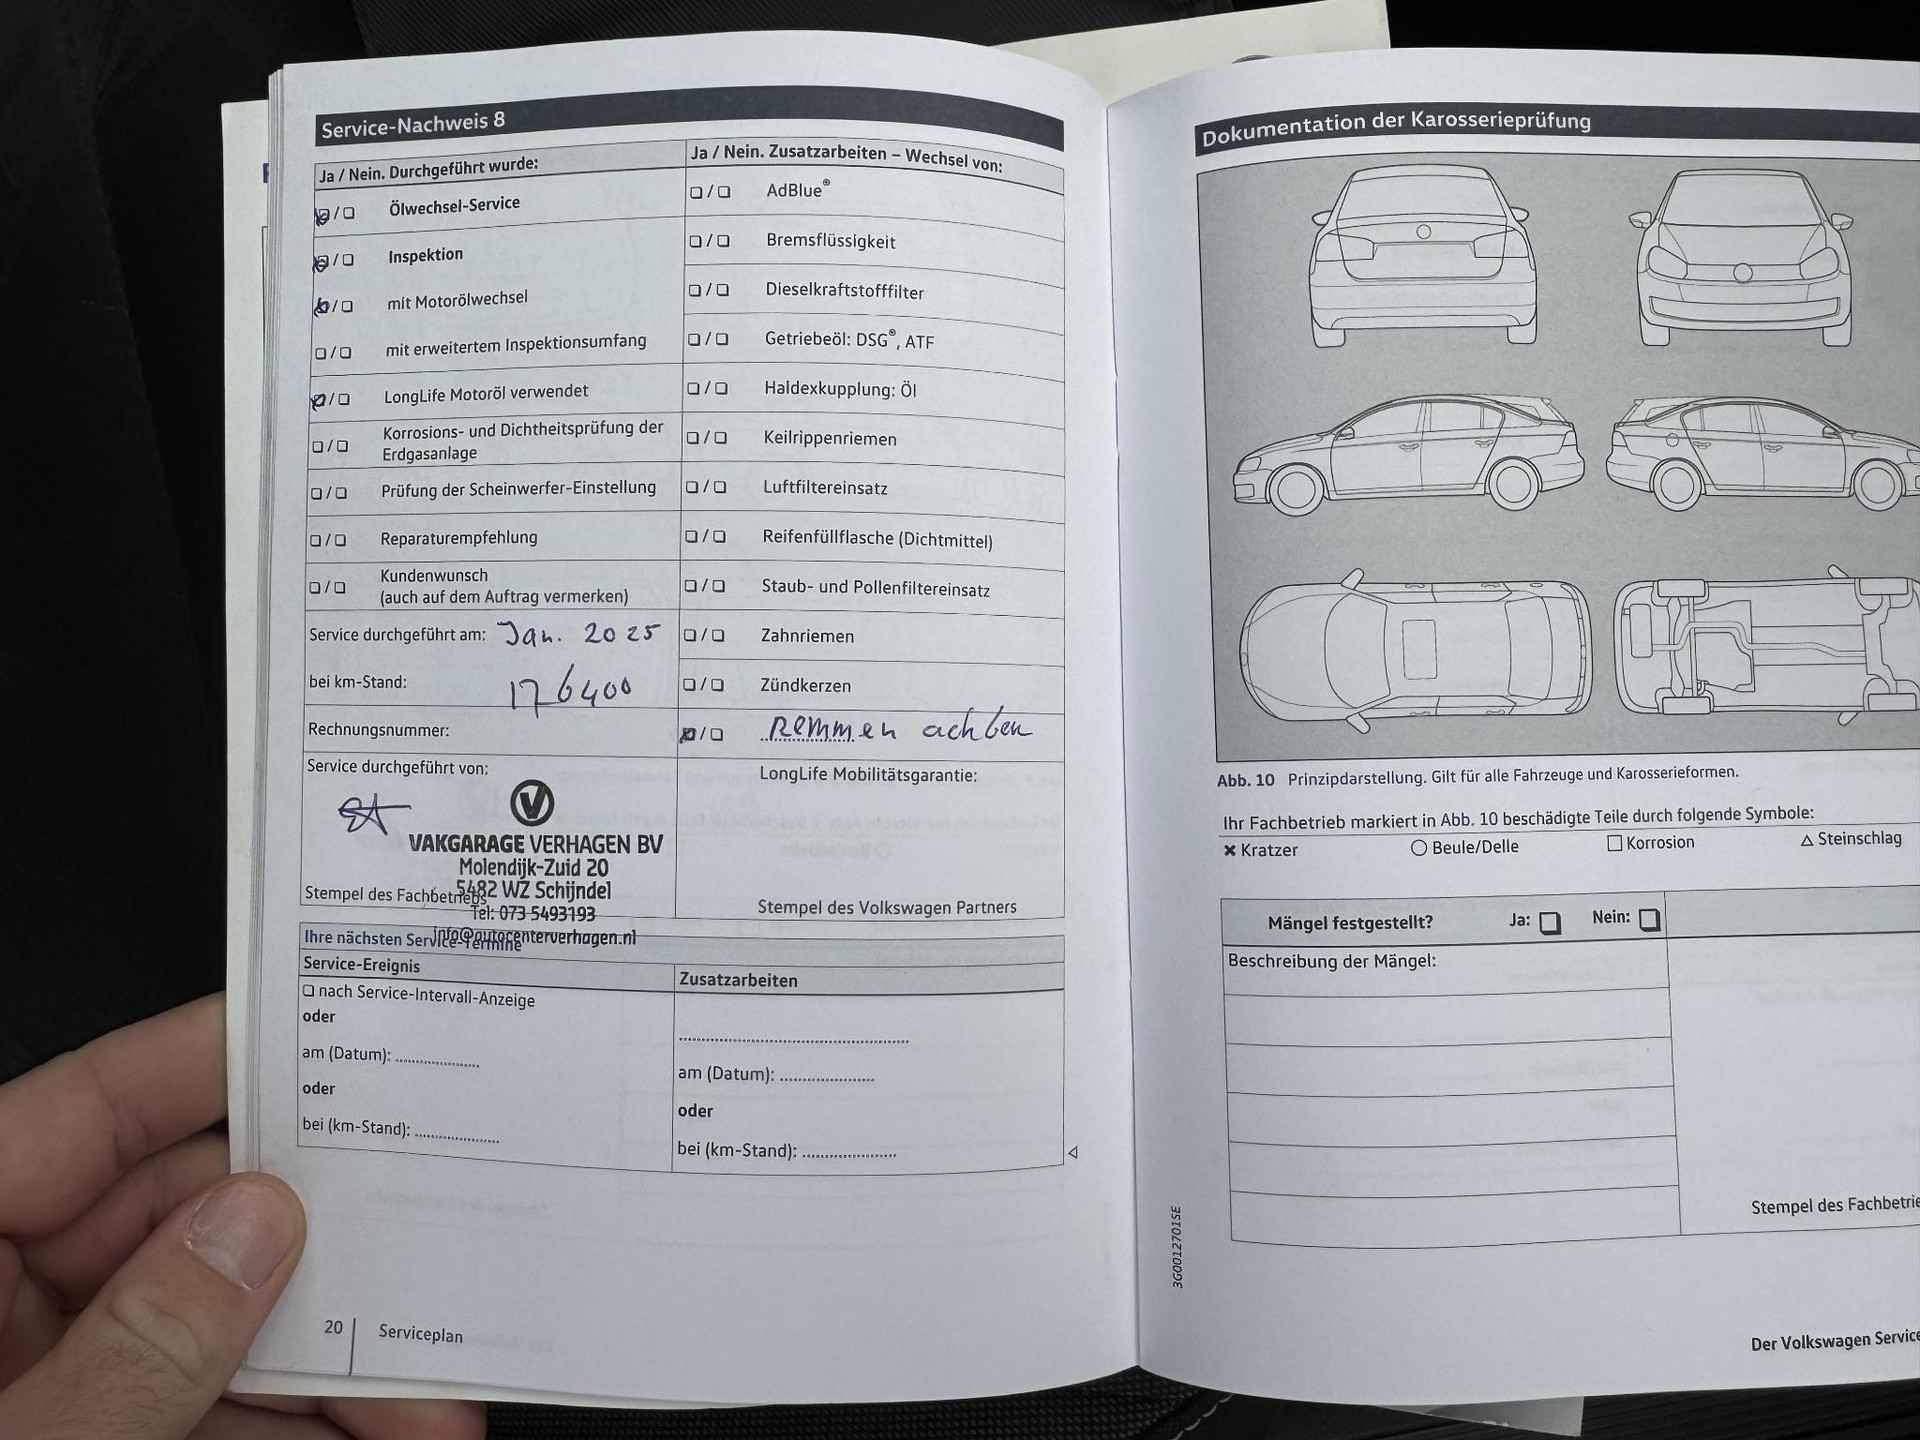 Service-Nachweis 8
Ja / Nein. Durchgeführt wurde:
Ölwechsel-Service
Inspektion
mit Motorölwechsel
mit erweitertem Inspektionsumfang
LongLife Motoröl verwendet
Korrosions- und Dichtheitsprüfung der
Erdgasanlage
Prüfung der Scheinwerfer-Einstellung
Reparaturempfehlung
Kundenwunsch
(auch auf dem Auftrag vermerken)
Service durchgeführt am: Jan. 2025
bei km-Stand: 176400
Rechnungsnummer:
Service durchgeführt von:
VAKGARAGE VERHAGEN BV
Molendijk-Zuid 20
5482 WZ Schijndel
Tel: 073 5493193
info@autocenterverhagen.nl
Stempel des Fachbetriebs
Ja / Nein. Zusatzarbeiten – Wechsel von:
AdBlue®
Bremsflüssigkeit
Dieselkraftstofffilter
Getriebeöl: DSG®, ATF
Haldexkupplung: Öl
Keilrippenriemen
Luftfiltereinsatz
Reifenfüllflasche (Dichtmittel)
Staub- und Pollenfiltereinsatz
Zahnriemen
Zündkerzen
Remmen achben
LongLife Mobilitätsgarantie:
Stempel des Volkswagen Partners
Ihre nächsten Service-Termine
Service-Ereignis
nach Service-Intervall-Anzeige
oder
am (Datum): ....................
oder
bei (km-Stand): ....................
Zusatzarbeiten
am (Datum): ......................
oder
bei (km-Stand): ......................
20
Serviceplan
Dokumentation der Karosserieprüfung
Abb. 10 Prinzipdarstellung. Gilt für alle Fahrzeuge und Karosserieformen.
Ihr Fachbetrieb markiert in Abb. 10 beschädigte Teile durch folgende Symbole:
Kratzer
Beule/Delle
Korrosion
Steinschlag
Mängel festgestellt? Ja: Nein:
Beschreibung der Mängel:
Stempel des Fachbetrie
3G0012701SE
Der Volkswagen Service